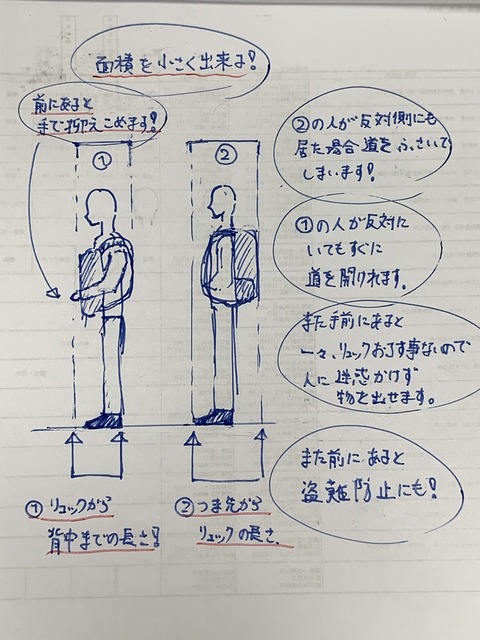 面積を小さく出来る!
前にあると
手で抑えこめます!
①
②
②の人が反対側にも
居た場合道をふさいで
しまいます!
①の人が反対に
いてもすぐに
道を開けれます。
また手前にあると
一々、リュックおろす事ないので
人に迷惑かけず
物を出せます。
また前にあると
盗難防止にも!
① リュックから
背中までの長さ!
② つま先から
リュックの長さ。